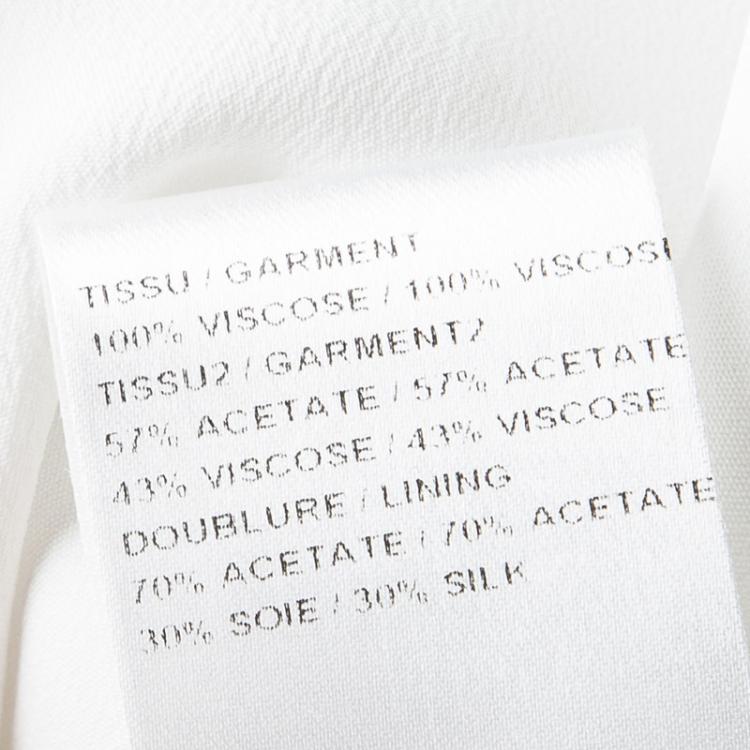 TISSU / GARMENT
100% VISCOSE / 100% VISCOSE
TISSU2 / GARMENT2
57% ACETATE / 57% ACETATE
43% VISCOSE / 43% VISCOSE
DOUBLURE / LINING
70% ACETATE / 70% ACETATE
30% SOIE / 30% SILK